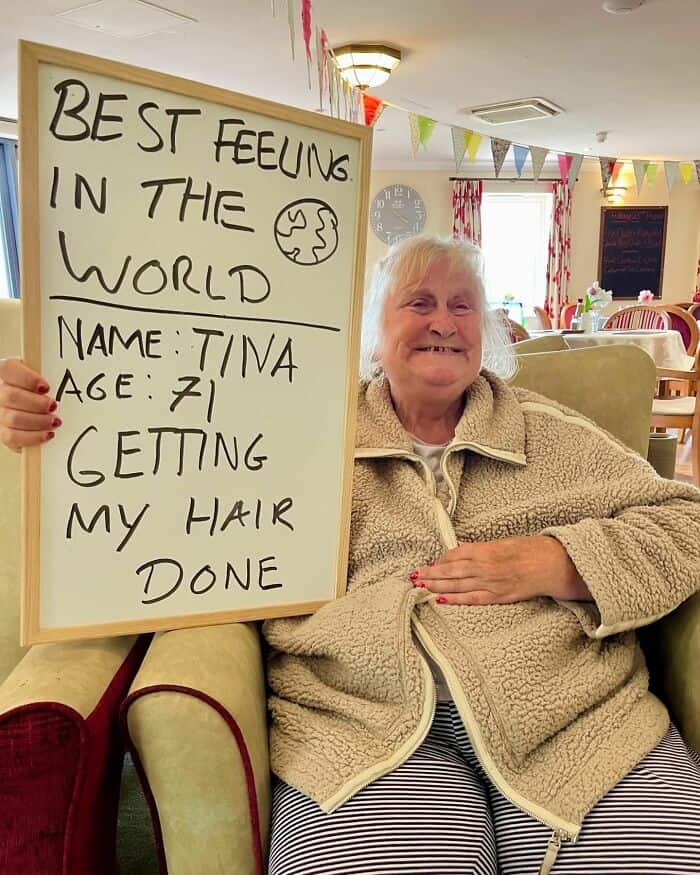 BEST FEELING
IN THE
WORLD
NAME: TINA
AGE: 71
GETTING
MY HAIR
DONE